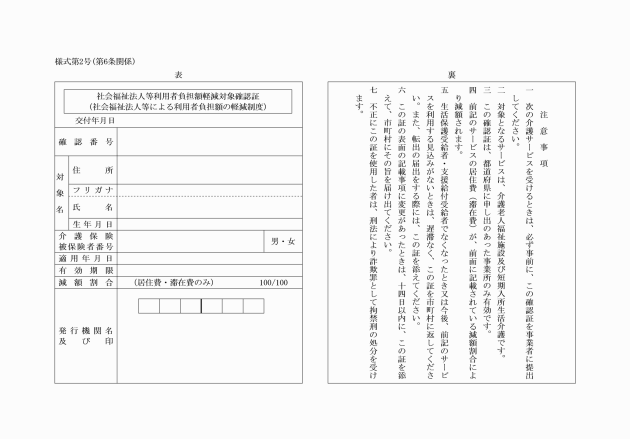 様式第2号(第6条関係)
表
社会福祉法人等利用者負担額軽減対象確認証
(社会福祉法人等による利用者負担額の軽減制度)
交付年月日
確認番号
対象名
住所
フリガナ
氏名
生年月日
介護保険
被保険者番号
男・女
適用年月日
有効期限
減額割合
(居住費・滞在費のみ) 100/100
発行機関名
及び印
裏
注意事項
一 次の介護サービスを受けるときは、必ず事前に、この確認証を事業者に提出
してください。
二 対象となるサービスは、介護老人福祉施設及び短期入所生活介護です。
三 この確認証は、都道府県に申し出のあった事業所のみ有効です。
四 前記のサービスの居住費(滞在費)が、前面に記載されている減額割合によ
り減額されます。
五 生活保護受給者・支援給付受給者でなくなったとき又は今後、前記のサービ
スを利用する見込みがないときは、遅滞なく、この証を市町村に返してくださ
い。また、転出の届出をする際には、この証を添えてください。
六 この証の表面の記載事項に変更があったときは、十四日以内に、この証を添
えて、市町村にその旨を届け出てください。
七 不正にこの証を使用した者は、刑法により詐欺罪として拘禁刑の処分を受け
ます。